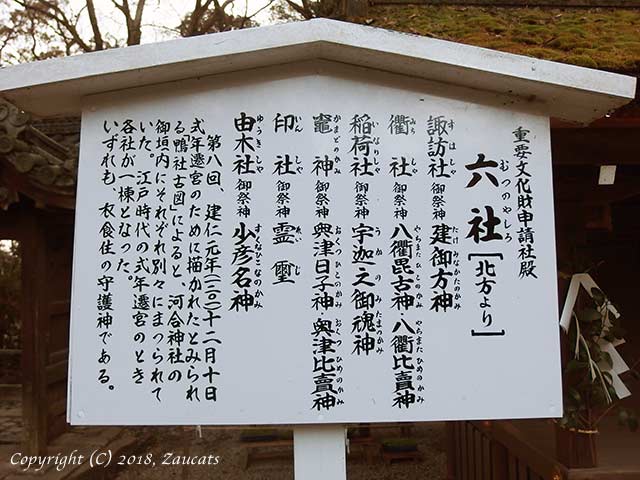 重要文化財申請社殿
六社[北方より]
むつのやしろ
諏訪社 御祭神 建御方神
すはしゃ たけみなかたのかみ
衢社 御祭神 八衢毘古神・八衢比賣神
みちしゃ やちまたひこのかみ やちまたひめのかみ
稲荷社 御祭神 宇迦之御魂神
いなりしゃ うかのみたまのかみ
竈神 御祭神 奥津日子神・奥津比賣神
かまどのかみ おくつひこのかみ おくつひめのかみ
印社 御祭神 霊璽
いんしゃ れいじ
由木社 御祭神 少彦名神
ゆうきしゃ すくなひこなのかみ
第八回、建仁元年(一二〇一)十二月十日
式年遷宮のために描かれたとみられ
る『鴨社古図』によると、河合神社の
御垣内にそれぞれ別々にまつられて
いた。江戸時代の式年遷宮のとき
各社が一棟となった。
いずれも、衣食住の守護神である。
Copyright (C) 2018, Zaucats